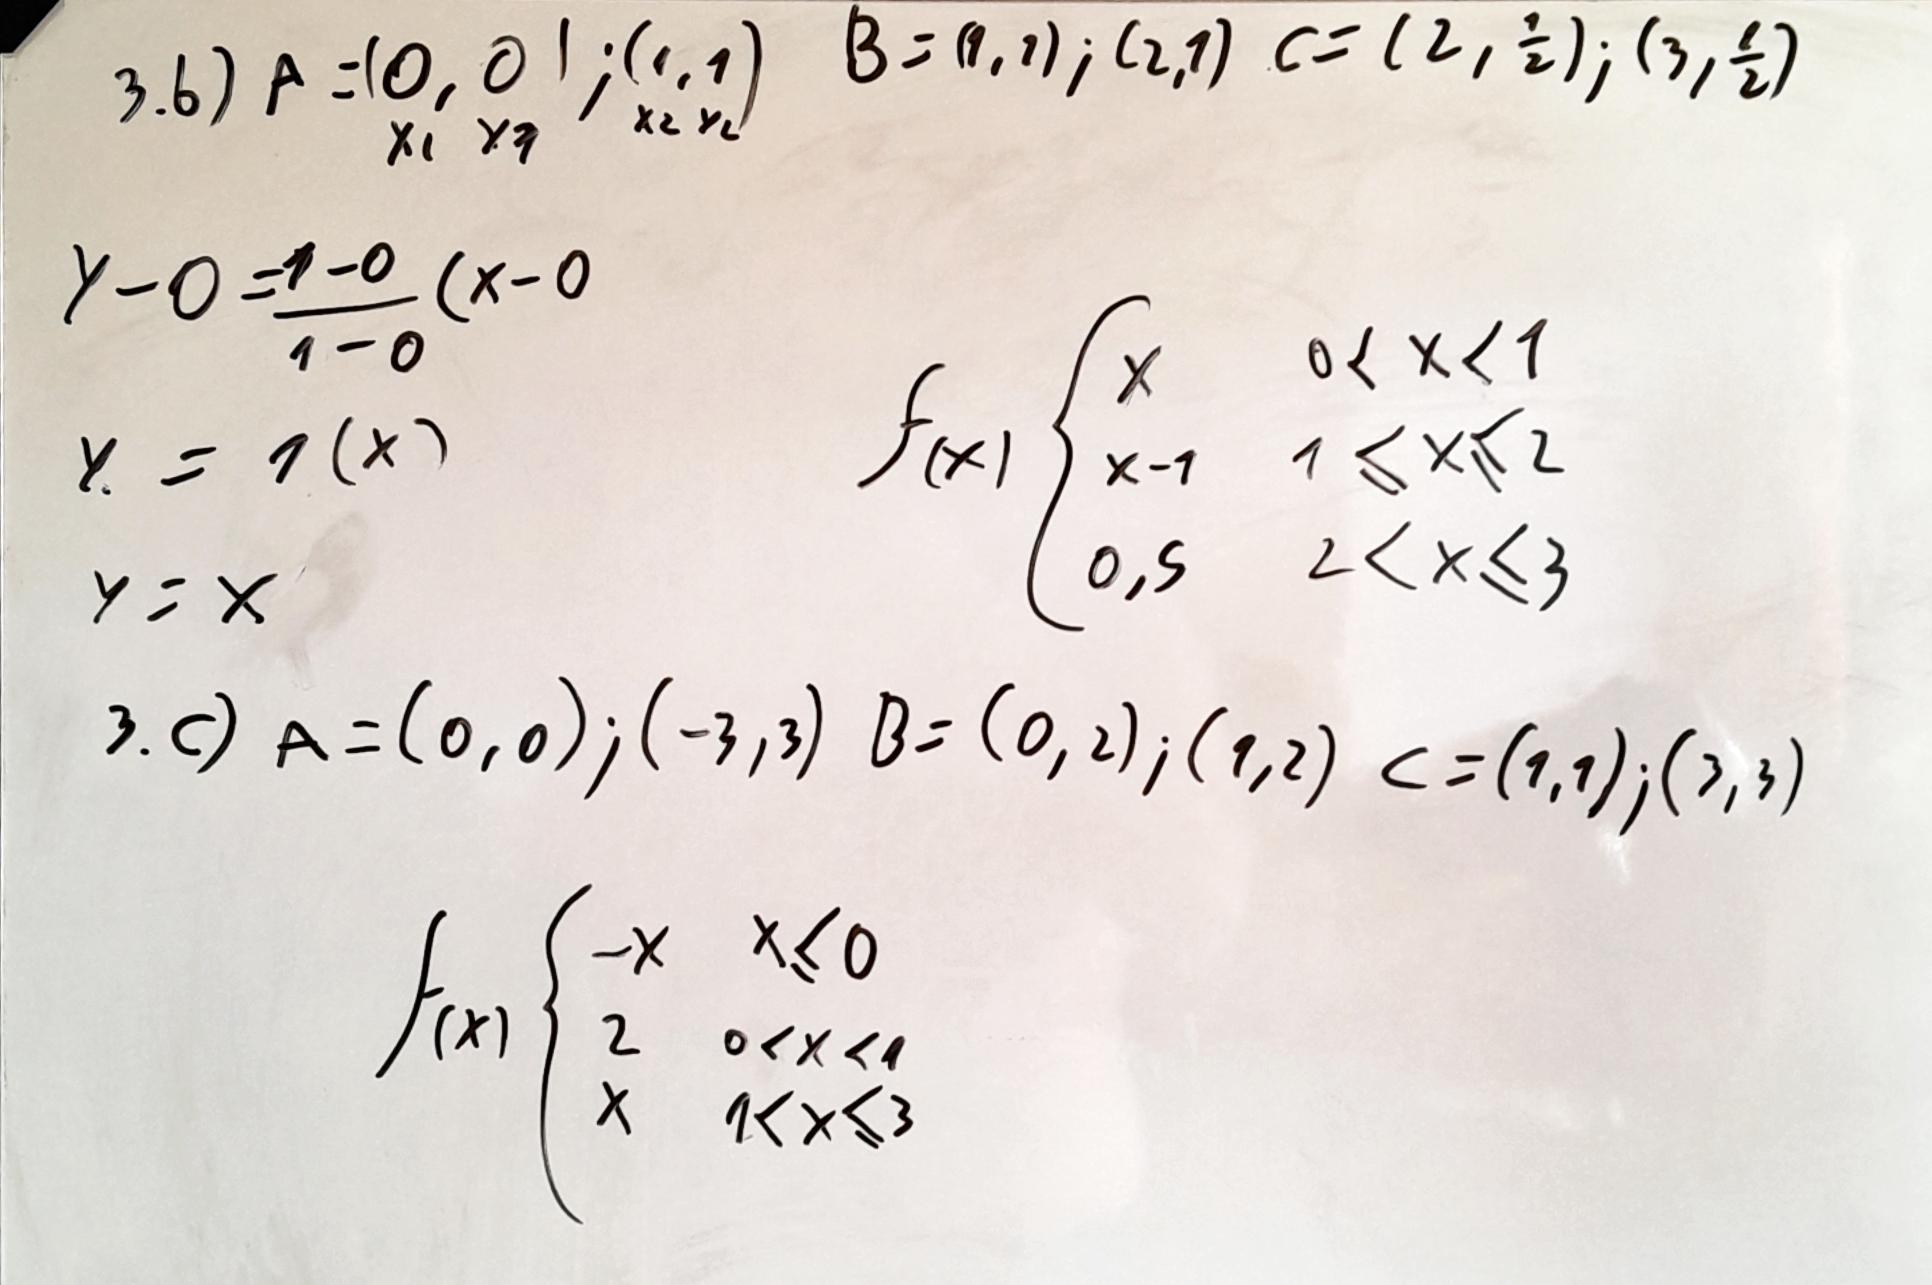 3.b) A = (0, 0); (1, 1) B = (1, 1); (2, 1) C = (2, 1/2); (3, 1/2)
x1 y1 x2 y2
y - 0 = 1-0/1-0 (x - 0
y = 1(x)
y = x
f(x) { x 0 < x < 1
x-1 1 ≤ x ≤ 2
0,5 2 < x ≤ 3
3.C) A = (0, 0); (-3, 3) B = (0, 2); (1, 2) C = (1, 1); (3, 3)
f(x) { -x x ≤ 0
2 0 < x < 1
x 1 < x ≤ 3